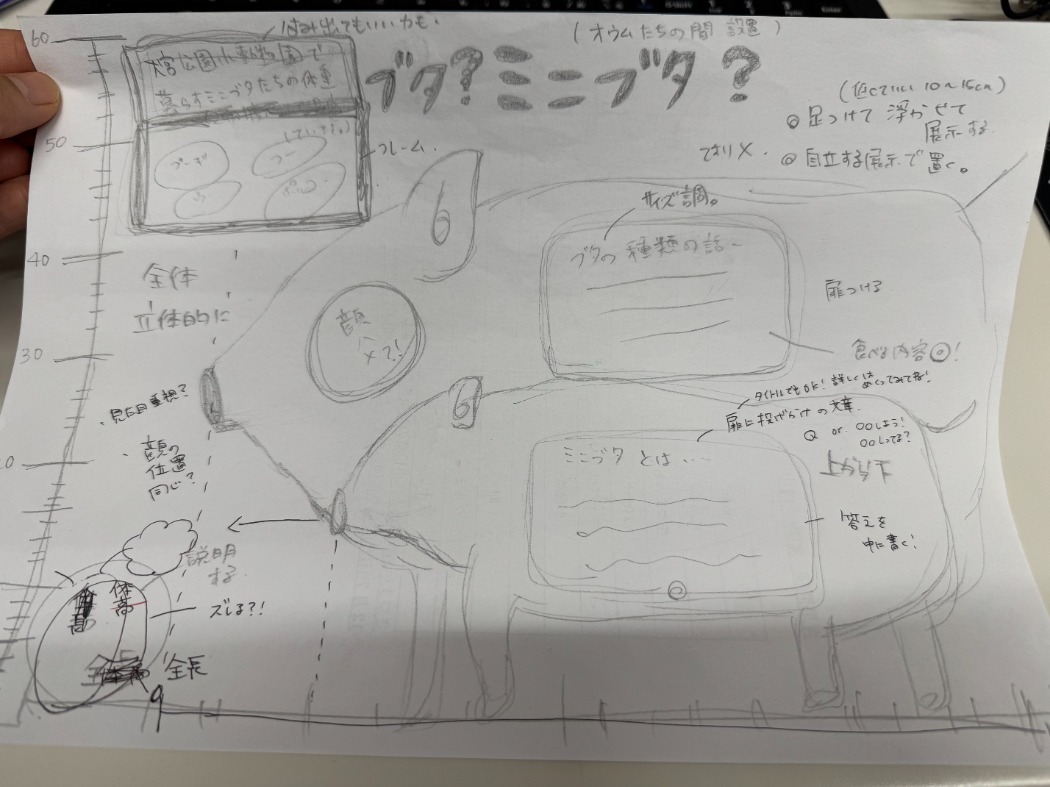 60
はみ出てもいいかも。
(オウムたちの間 設置)
大宮公園小動物園で
暮らすミニブタたちの体重
ブタ?ミニブタ?
(低くていい 10～15cm)
◎ 足つけて 浮かせて
展示する。
◎ 自立する展示で置く。
50
フレーム。
サイズ調。
ブタの種類の話～
40
全体
立体的に
扉つける
顔
ハ
×?!
食べる内容◎!
30
タイトルでもOK! 詳しくは
めくってみてね!
・見た目重視?
扉に投げかけの文章
Q or 〇〇しよう!
〇〇してる?
・顔の
位置
同じ?
ミニブタ とは・・・・
上から下
20
答えを
中に書く!
説明
する
体高
ズレる?!
全長